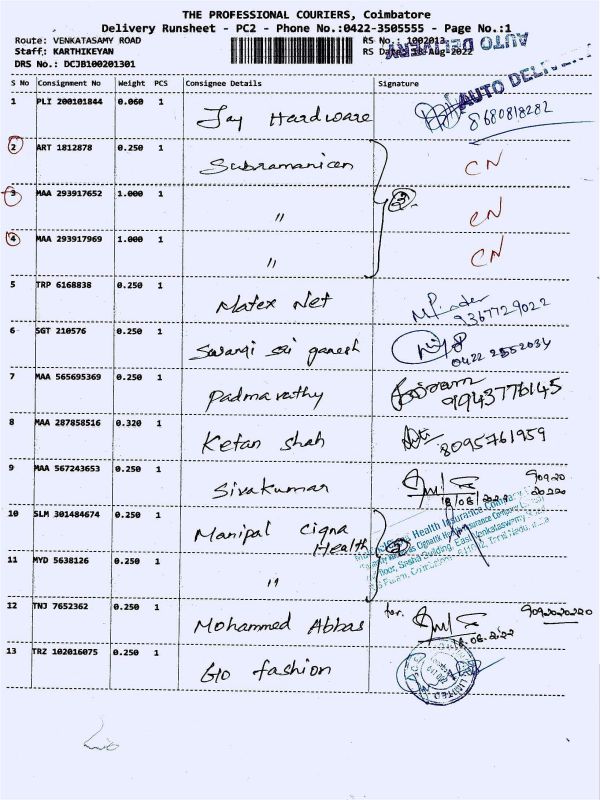 THE PROFESSIONAL COURIERS, Coimbatore
Delivery Runsheet - PC2 - Phone No.:0422-3505555 - Page No.:1
Route: VENKATASAMY ROAD
RS No.: 1002013
AUTO DELIVERY
Staff: KARTHIKEYAN
RS Date: 18-Aug-2022
DRS No.: DCJB100201301
S No Consignment No Weight PCS Consignee Details Signature
AUTO DELIVERY
1 PLI 200101844 0.060 1 Jay Hardware 8680818282
2 ART 1812878 0.250 1 Subramanian CN
3 MAA 293917652 1.000 1 " ③ CN
4 MAA 293917969 1.000 1 " CN
5 TRP 6168838 0.250 1 Matex Net 9367729022
6 SGT 210576 0.250 1 Swangi sri ganesh 0422 2552034
7 MAA 565695369 0.250 1 Padmavathy 9943776145
8 MAA 287858516 0.320 1 Ketan shah 8095761959
9 MAA 567243653 0.250 1 Sivakumar 90920
20220
18/08/2022
10 SLM 301484674 0.250 1 Manipal Cigna
Health ②
Health Insurance Company
11 MYD 5638126 0.250 1 "
12 TNJ 7652362 0.250 1 Mohammed Abbas for. 9092020220
18.08.2022
13 TRZ 102016075 0.250 1 Glo fashion